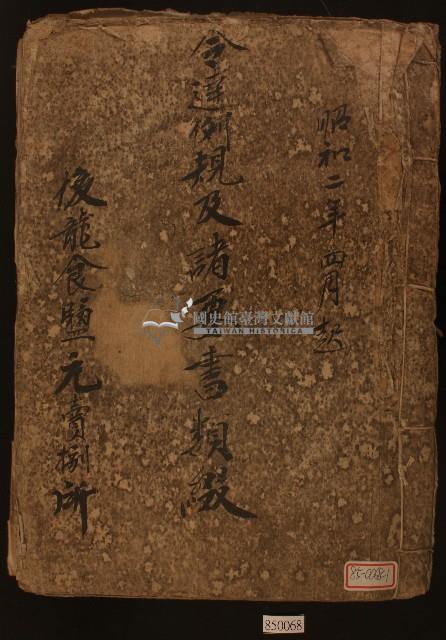 昭和二年四月起
令達例規及諸要書類綴
後龍食塩元賣捌所
國史館臺灣文獻館
TAIWAN HISTORICA
85-0068-1
850068